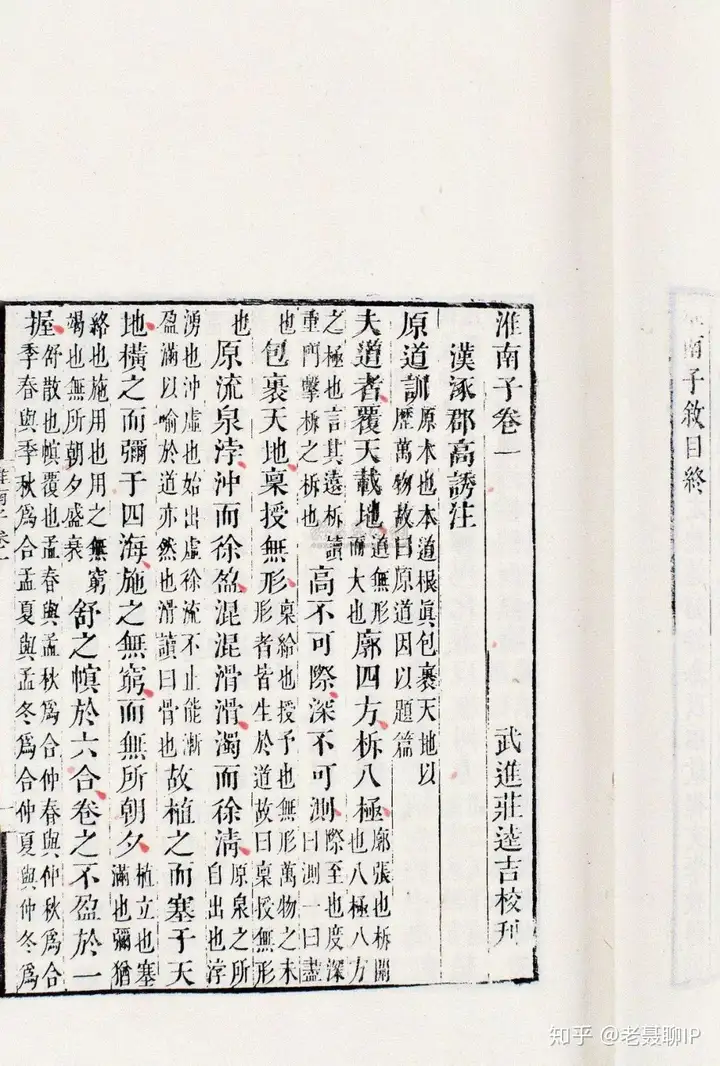 南子敘目終
淮南子卷一 武進莊逵吉校刊
漢涿郡高誘注
原道訓 原本也本道根眞包裹天地以歷萬物故曰原道因以題篇
夫道者覆天載地 道無形而大也 廓四方柝八極 廓張也柝開也八極八方
之極也言其遠柝讀重門擊柝之柝也 高不可際深不可測 際至也度深曰測一曰盡
也 包裹天地稟授無形 稟給也授予也無形萬物之未形者皆生於道故曰稟授無形
也 原流泉浡沖而徐盈混混滑滑濁而徐清 原泉之所自出也浡
湧也沖虛也始出虛徐流不止能漸盈滿以喻於道亦然也滑讀曰骨也 故植之而塞于天
地橫之而彌于四海施之無窮而無所朝夕 植立也塞滿也彌猶
絡也施用也用之無窮竭也無所朝夕盛衰 舒之幎於六合卷之不盈於一
握 舒散也幎覆也孟春與孟秋爲合仲春與仲秋爲合季春與季秋爲合孟夏與孟冬爲合仲夏與仲冬爲
淮南子卷一
知乎 @老聂聊IP